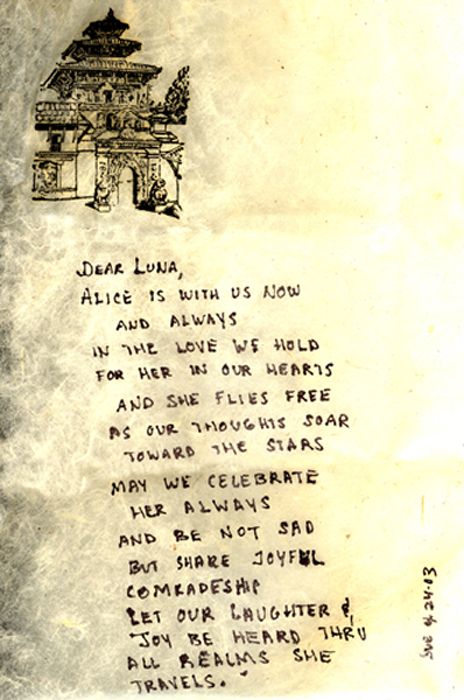 DEAR LUNA,
ALICE IS WITH US NOW
AND ALWAYS
IN THE LOVE WE HOLD
FOR HER IN OUR HEARTS
AND SHE FLIES FREE
AS OUR THOUGHTS SOAR
TOWARD THE STARS
MAY WE CELEBRATE
HER ALWAYS
AND BE NOT SAD
BUT SHARE JOYFUL
COMRADESHIP
LET OUR LAUGHTER &
JOY BE HEARD THRU
ALL REALMS SHE
TRAVELS.
24-03